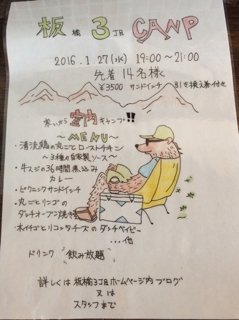 板橋3丁目 CAMP
2016.1.27(水) 19:00〜21:00
先着14名様
¥3500 サンドイッチ 引き換え券付き
寒いから室内キャンプ!!
〜MENU〜
・清流鶏の丸ごとローストチキン
〜3種の自家製ソース〜
・牛スジの36時間煮込み
カレー
・ヒクマサンドイッチ
・丸ごとリンゴの
ダッチオーブン焼き
・木イチゴとリコッタチーズのダッチベイビー
...他
ドリンク 飲み放題
詳しくは板橋3丁目ホームページ内ブログ
又は
スタッフまで